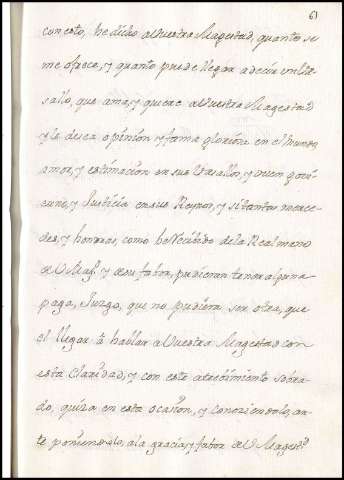 61
con esto, he dicho a Vuestra Magestad, quanto se
me ofrece, y quanto puede llegar a decir un Va-
sallo, que ama, y quiere a Vuestra Magestad
y le desea opinion y fama gloriosa en el mundo
amor, y estimacion en sus Vasallos, y buen govi-
erno, y Justicia en sus Reynos, y si tantas merce-
des, y honrras, como he Recibido de la Real mano
de V. Mag. y de su fabor, pudieran tener alguna
paga, Juzgo, que no pudiera ser otra, que
el llegar à hablar a Vuestra Magestad con
esta Claridad, y con este atrebimiento sobra-
do, quiza en esta ocasion, y conoziendolo, an-
te poniendolo, a la gracia, y fabor de V. Magest.d